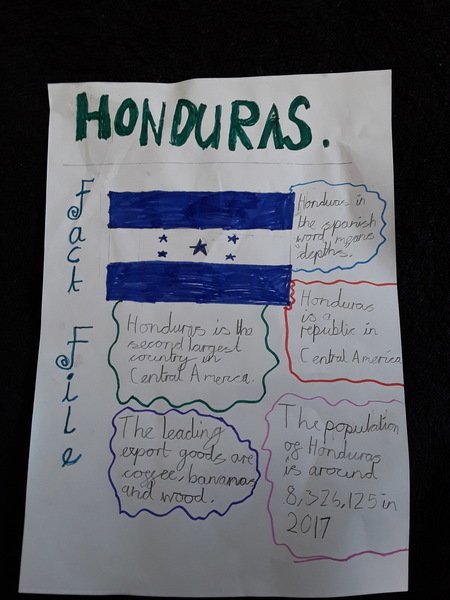 HONDURAS.
Fact File
Honduras in
the spanish
word means
depths.
Honduras
is a
republic in
Central America
Honduras is the
second largest
country in
Central America.
The leading
export goods are
coffee, bananas
and wood.
The population
of Honduras
is around
8,325,125 in
2017